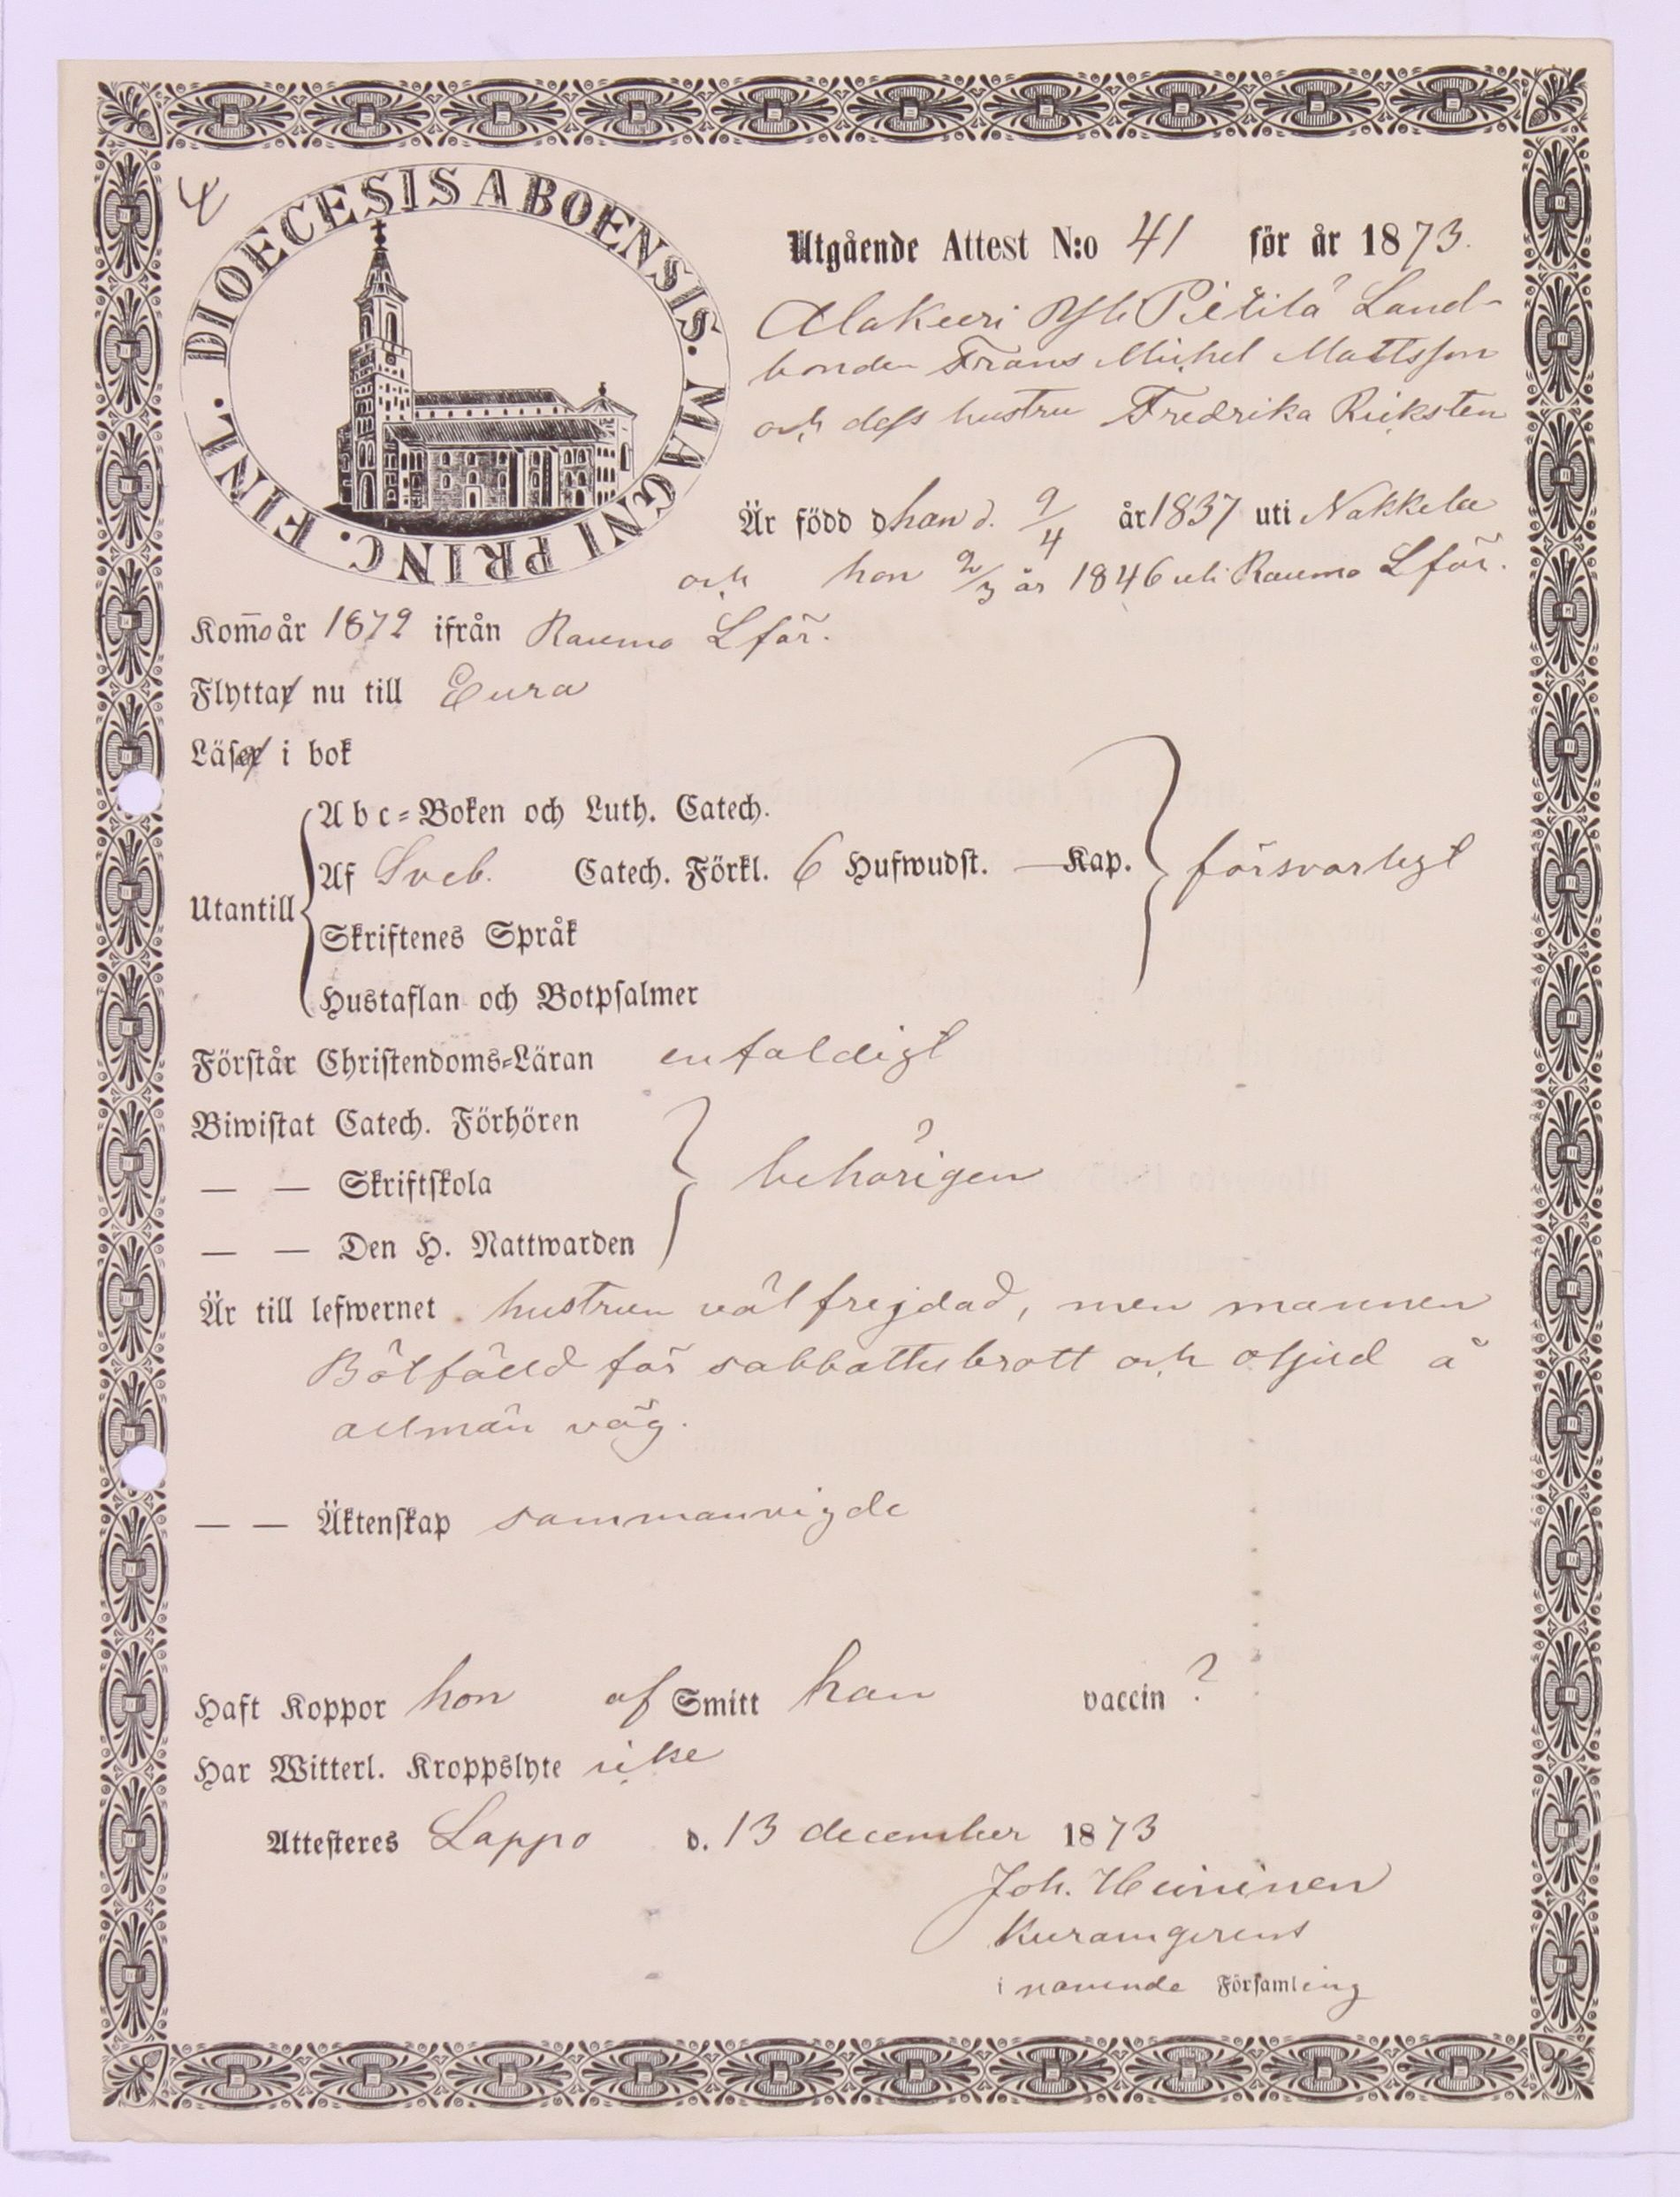 DIOECESIS ABOENSIS. MAGNI PRINC. FINL.
Utgående Attest N:o 41 för år 1873.
Alakeeri Yli Pietilä Land-
bonden Frans Michel Mattsson
och dess hustru Fredrika Ricksten
Är född d han d. 9/4 år 1837 uti Nakkela
och hon 2/3 år 1846 uti Raumo Lför.
Kommo år 1872 ifrån Raumo Lför.
Flytta nu till Eura
Läsa i bok
Abc-Boken och Luth. Catech.
Utantill Af Sveb. Catech. Förkl. 6 Hufwudst. — Kap. försvarligt
Skriftenes Språk
Hustaflan och Botpsalmer
Förstår Christendoms-Läran enfaldigt
Biwistat Catech. Förhören
— — Skriftskola behörigen
— — Den H. Nattwarden
Är till lefwernet hustrun välfrejdad, men mannen
Bötfälld för sabbattsbrott och oljud å
allmän väg.
— — Äktenskap sammanvigde
Haft Koppor hon af Smitt han vaccin?
Har Witterl. Kroppslyte icke
Attesteres Lappo d. 13 december 1873
Joh. Heininen
Kuramgerens
i Församling